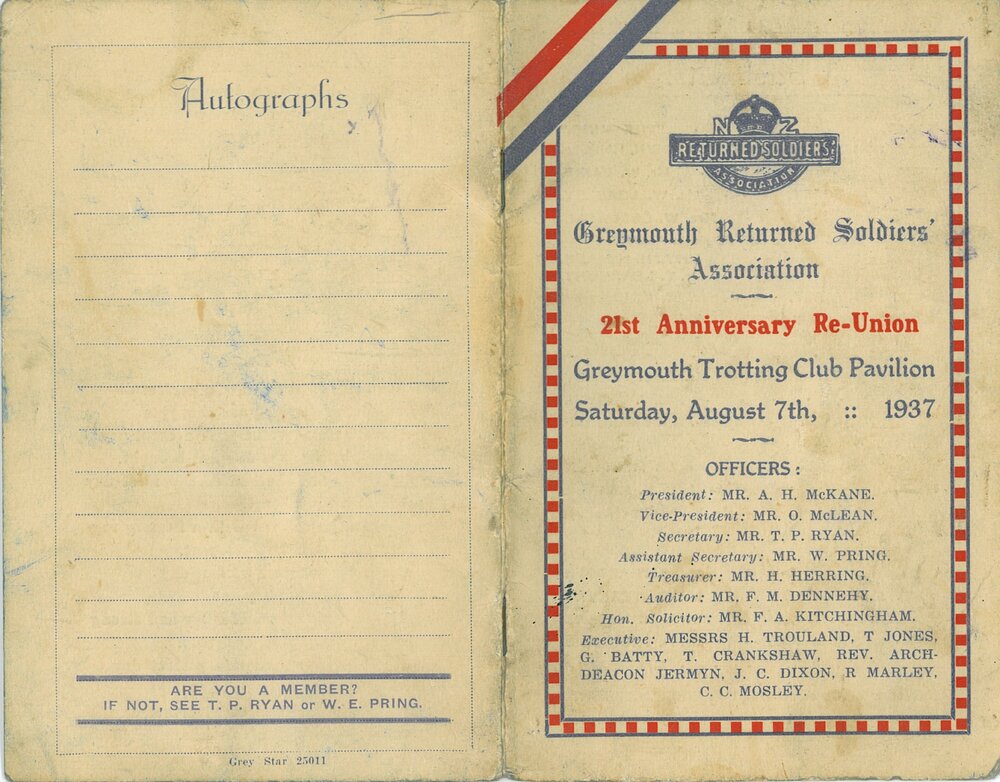 Autographs
ARE YOU A MEMBER?
IF NOT, SEE T. P. RYAN or W. E. PRING.
Grey Star 25011
N Z
RETURNED SOLDIERS'
ASSOCIATION
Greymouth Returned Soldiers'
Association
21st Anniversary Re-Union
Greymouth Trotting Club Pavilion
Saturday, August 7th, :: 1937
OFFICERS :
President: MR. A. H. McKANE.
Vice-President: MR. O. McLEAN.
Secretary: MR. T. P. RYAN.
Assistant Secretary: MR. W. PRING.
Treasurer: MR. H. HERRING.
Auditor: MR. F. M. DENNEHY.
Hon. Solicitor: MR. F. A. KITCHINGHAM.
Executive: MESSRS H. TROULAND, T JONES,
G. BATTY, T. CRANKSHAW, REV. ARCH-
DEACON JERMYN, J. C. DIXON, R MARLEY,
C. C. MOSLEY.